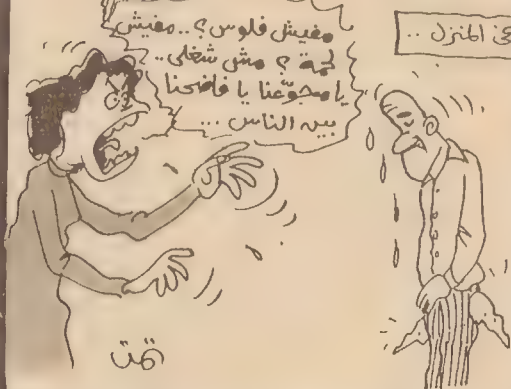 في المنزل ..
مفيش فلوس ؟ .. مفيش
لحمة ؟ مش شغلي ..
يا مجوّعنا يا فاضحنا
بين الناس ...
تمت